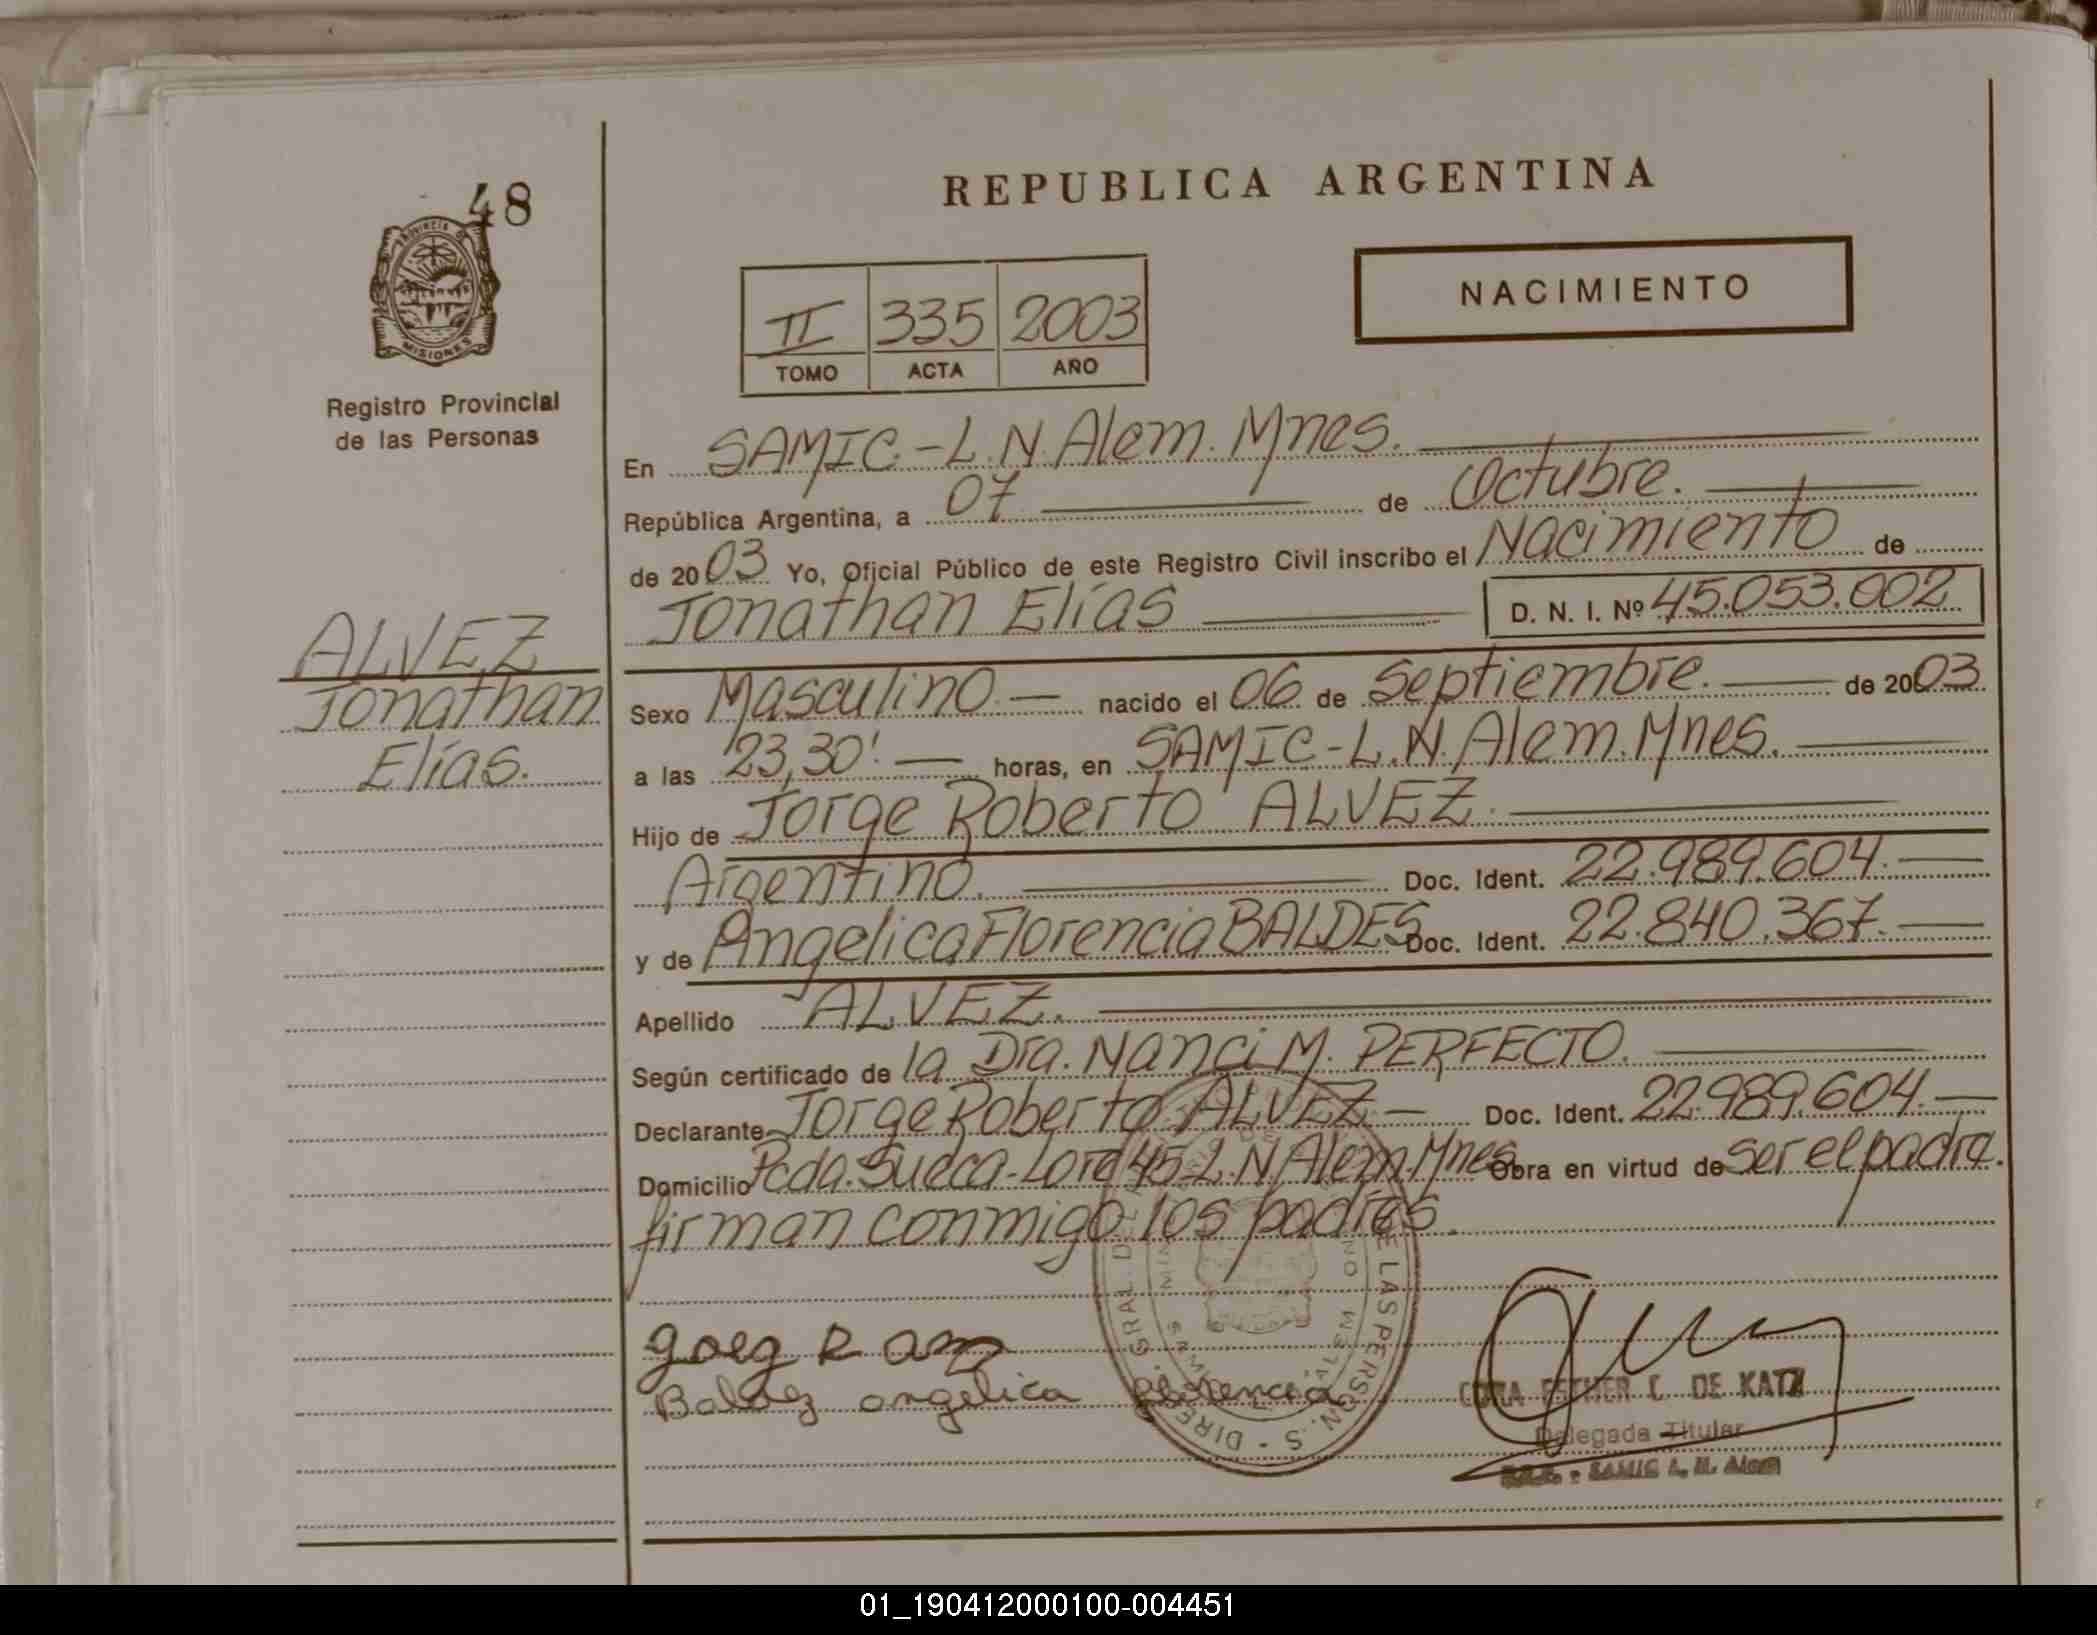 48
PROVINCIA DE
MISIONES
Registro Provincial
de las Personas
ALVEZ
Jonathan
Elías.
REPUBLICA ARGENTINA
NACIMIENTO
II 335 2003
TOMO ACTA AÑO
En SAMIC.-L.N.Alem.Mnes.
República Argentina, a 07 de Octubre.
de 2003 Yo, Oficial Público de este Registro Civil inscribo el Nacimiento de
Jonathan Elías D. N. I. Nº 45.053.002
Sexo Masculino.- nacido el 06 de Septiembre. de 2003
a las 23,30'. horas, en SAMIC-L.N.Alem.Mnes.
Hijo de Jorge Roberto ALVEZ.
Argentino. Doc. Ident. 22.989.604.
y de Angelica Florencia BALDES Doc. Ident. 22.840.367.
Apellido ALVEZ.
Según certificado de la Dra. Nanci M. PERFECTO.
Declarante Jorge Roberto ALVEZ- Doc. Ident. 22.989.604.
Domicilio Pcda. Sueca-Lote 45-L.N.Alem.Mnes Obra en virtud de ser el padre.
firman conmigo los padres.
angelica florencia
ESTHER C. DE KATZ
Delegada Titular
SAMIC L. N. Alem
01_190412000100-004451